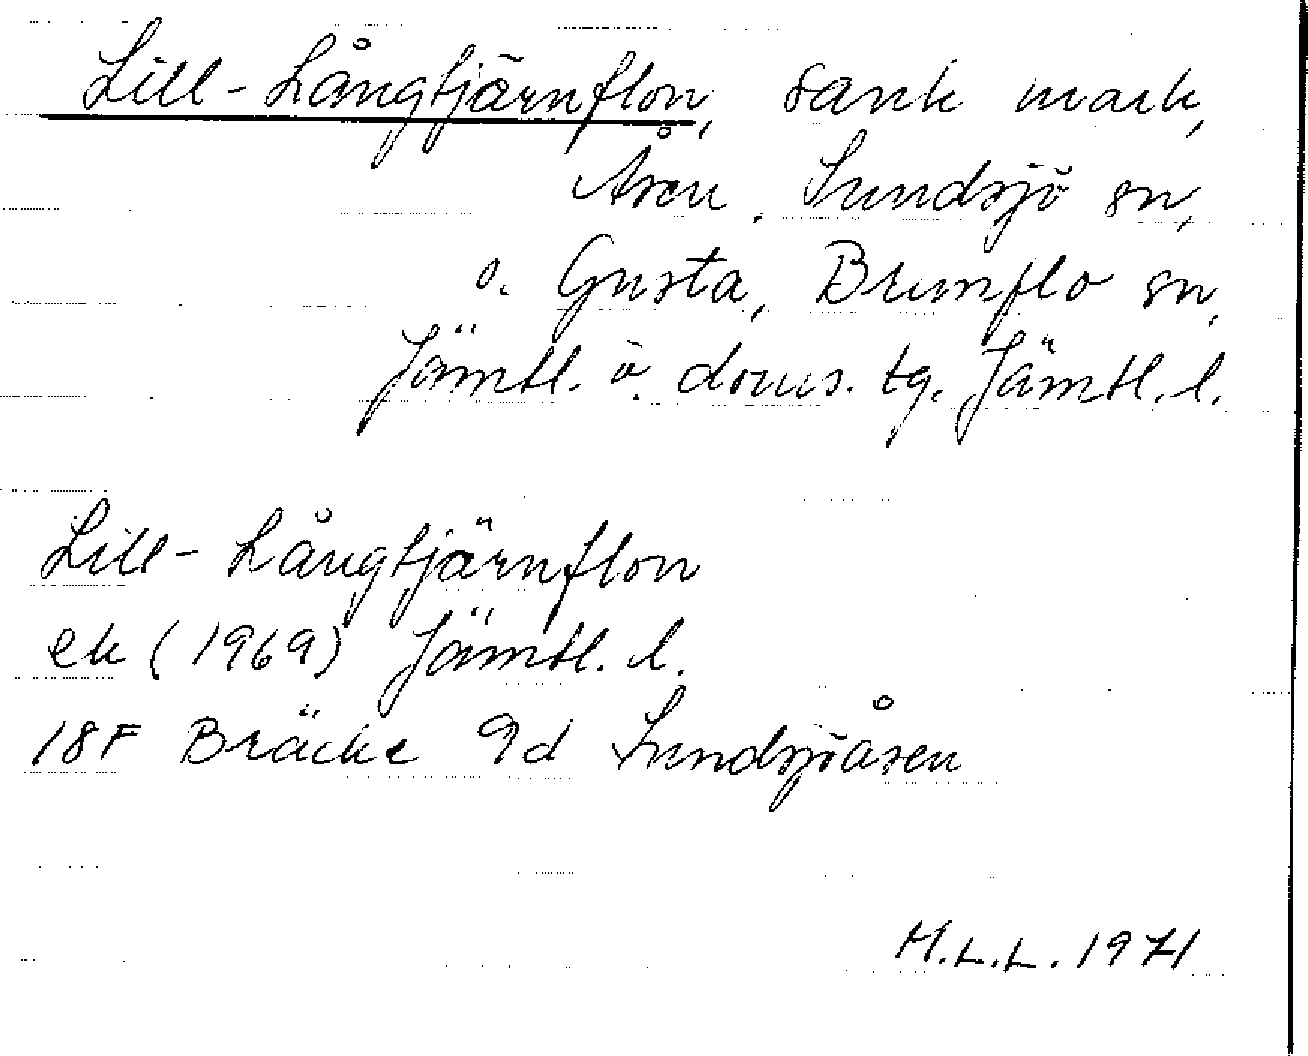 Lill-Långtjärnflon, sank mark,
Åsen, Sundsjö sn,
o. Gusta, Brunflo sn,
Jämtl. ö. doms. tg. Jämtl. l.
Lill-Långtjärnflon
ek (1969) Jämtl. l.
18F Bräcke 9d Sundsjöåsen
M.L.L. 1971